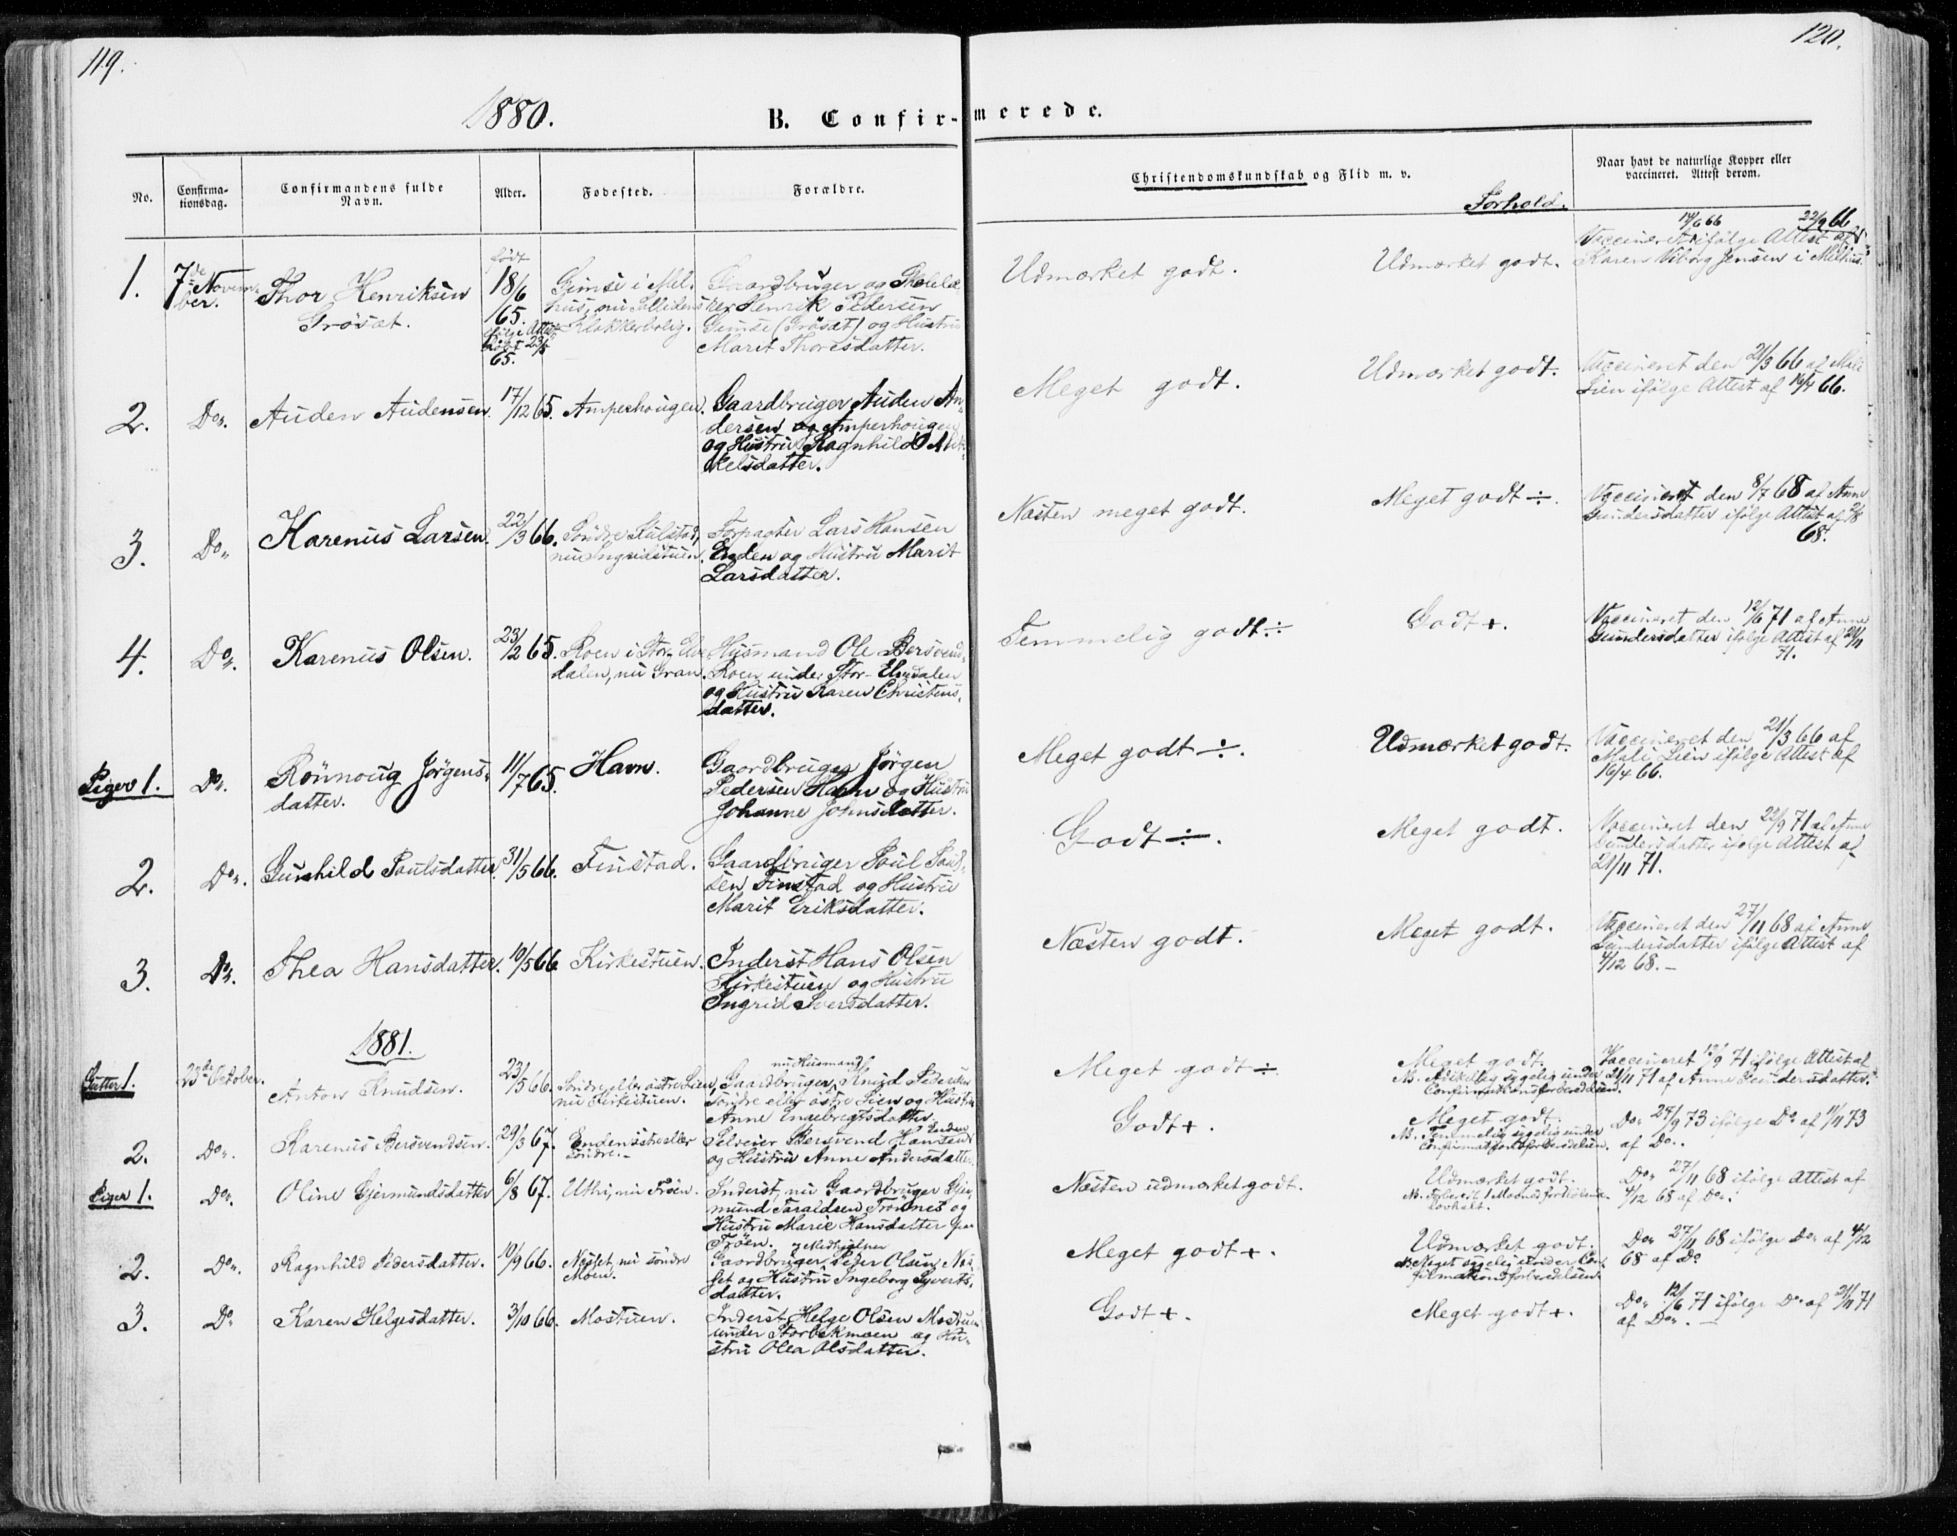 119.
120.
1880.
B. Confirmerede.
No.
Confirma-
tionsdag.
Confirmandens fulde
Navn.
Alder.
Fødested.
Forældre.
Christendomskundskab og Flid m. v.
Forhold.
Naar havt de naturlige Kopper eller
vaccineret. Attest derom.
1.
7de Novem-
ber.
Thor Henriksen
Grösæt.
født
18/6
65.
65.
Gimse i Mel-
hus, nu
Klokkerbolig.
Gaardbruger og Skolelæ-
rer Henrik Pedersen
Gimse (Grösæt) og Hustru
Marit Thoresdatter.
Udmærket godt.
Udmærket godt.
14/6 66 22/9 66
Vaccineret ifölge Attest af
Karen Viborg Jensen i Melhus.
2.
Do.
Auden Audensen.
17/12 65.
Amperhougen.
Gaardbruger Auden An-
dersen Amperhougen
og Hustru Ragnhild Mik-
kelsdatter.
Meget godt.
Udmærket godt.
Vaccineret den 21/3 66 af Mali
Lien ifölge Attest af 16/4 66.
3.
Do.
Karenus Larsen.
22/3 66.
Söndre Stulstad,
nu Ingridstuen.
Forpagter Lars Hansen
Enden og Hustru Marit
Larsdatter.
Næsten meget godt.
Meget godt ÷.
Vaccineret den 8/7 68 af Anne
Gundersdatter ifölge Attest af
68.
4.
Do.
Karenus Olsen.
23/12 65.
Roen i Stor-Elv-
dalen, nu Gran.
Husmand Ole Bersvend-
Roen under Stor-Elvdalen
og Hustru Karen Christens-
datter.
Temmelig godt ÷
Godt +.
Vaccineret den 12/6 71 af Anne
Gundersdatter ifölge Attest af 21/11
71.
Piger 1.
Do.
Rönnoug Jörgens-
datter.
11/7 65.
Havn.
Gaardbruger Jörgen
Pedersen Havn og Hustru
Johanne Johnsdatter.
Meget godt ÷.
Udmærket godt.
Vaccineret den 21/3 66 af
Mali Lien ifölge Attest af
16/4 66.
2.
Do.
Gunhild Paulsdatter.
31/5 66.
Finstad.
Gaardbruger Poul Poul-
sen Finstad og Hustru
Marit Eriksdatter.
Godt ÷.
Meget godt.
Vaccineret den 22/9 71 af Anne
Gundersdatter ifölge Attest af
21/11 71.
3.
Do.
Thea Hansdatter.
10/5 66
Kirkestuen.
Inderst Hans Olsen
Kirkestuen og Hustru
Ingrid Iversdatter.
Næsten godt.
Meget godt.
Vaccineret den 27/11 68 af Anne
Gundersdatter ifölge Attest af
4/12 68. –
1881.
Gutter 1.
23de October.
Anton Knudsen.
23/5 66.
Söndre eller östre Lien,
nu Kirkestuen.
nu Husmand
Gaardbruger Knud Pedersen
söndre eller östre Lien og Hustru
Anne Engebregtsdatter.
Meget godt ÷
Meget godt.
NB. sygelig under
Confirmationsforberedelsen.
Vaccineret 12/9 71 ifölge Attest af
21/11 71 af Anne Gundersdatter.
2.
Do.
Karenus Bersvendsen.
29/3 67.
Enden östre eller
söndre. –
Enden
Selveier Bersvend Hansen
og Hustru Anne Andersdatter.
Godt +.
Meget godt.
NB. Temmelig sygelig under
Confirmationsforberedelsen.
Do. 27/9 73 ifölge Do. af 11/11 73
af Do.
Piger 1.
Do.
Oline Gjermundsdatter
6/8 67.
Uthi, nu Tröen.
Inderst, nu Gaardbruger Gjer-
mund Taraldsen Trönnes og
Hustru Marie Hansdatter
Tröen.
Næsten udmærket godt.
Udmærket godt.
Do. 27/11 68 ifölge Attest af
4/12 68 af Do.
2.
Do.
Ragnhild Pedersdatter.
10/9 66.
Næsset, nu söndre
Moen.
og Medhjælper
Gaardbruger Peder Olsen Næs-
set og Hustru Ingeborg Syverts-
datter.
Meget godt +.
Udmærket godt.
NB. Meget sygelig under Con-
firmationsforberedelsen.
Do. 27/11 68 ifölge Do. af 4/12
68 af Do
3.
Do
Karen Helgesdatter.
3/10 66.
Mostuen.
Inderst Helge Olsen Mostuen
under Storbekmoen og Hu-
stru Olea Olsdatter.
Godt +.
Meget godt +.
Do. 12/6 71 ifölge Do. af 21/11 71
af Do. –